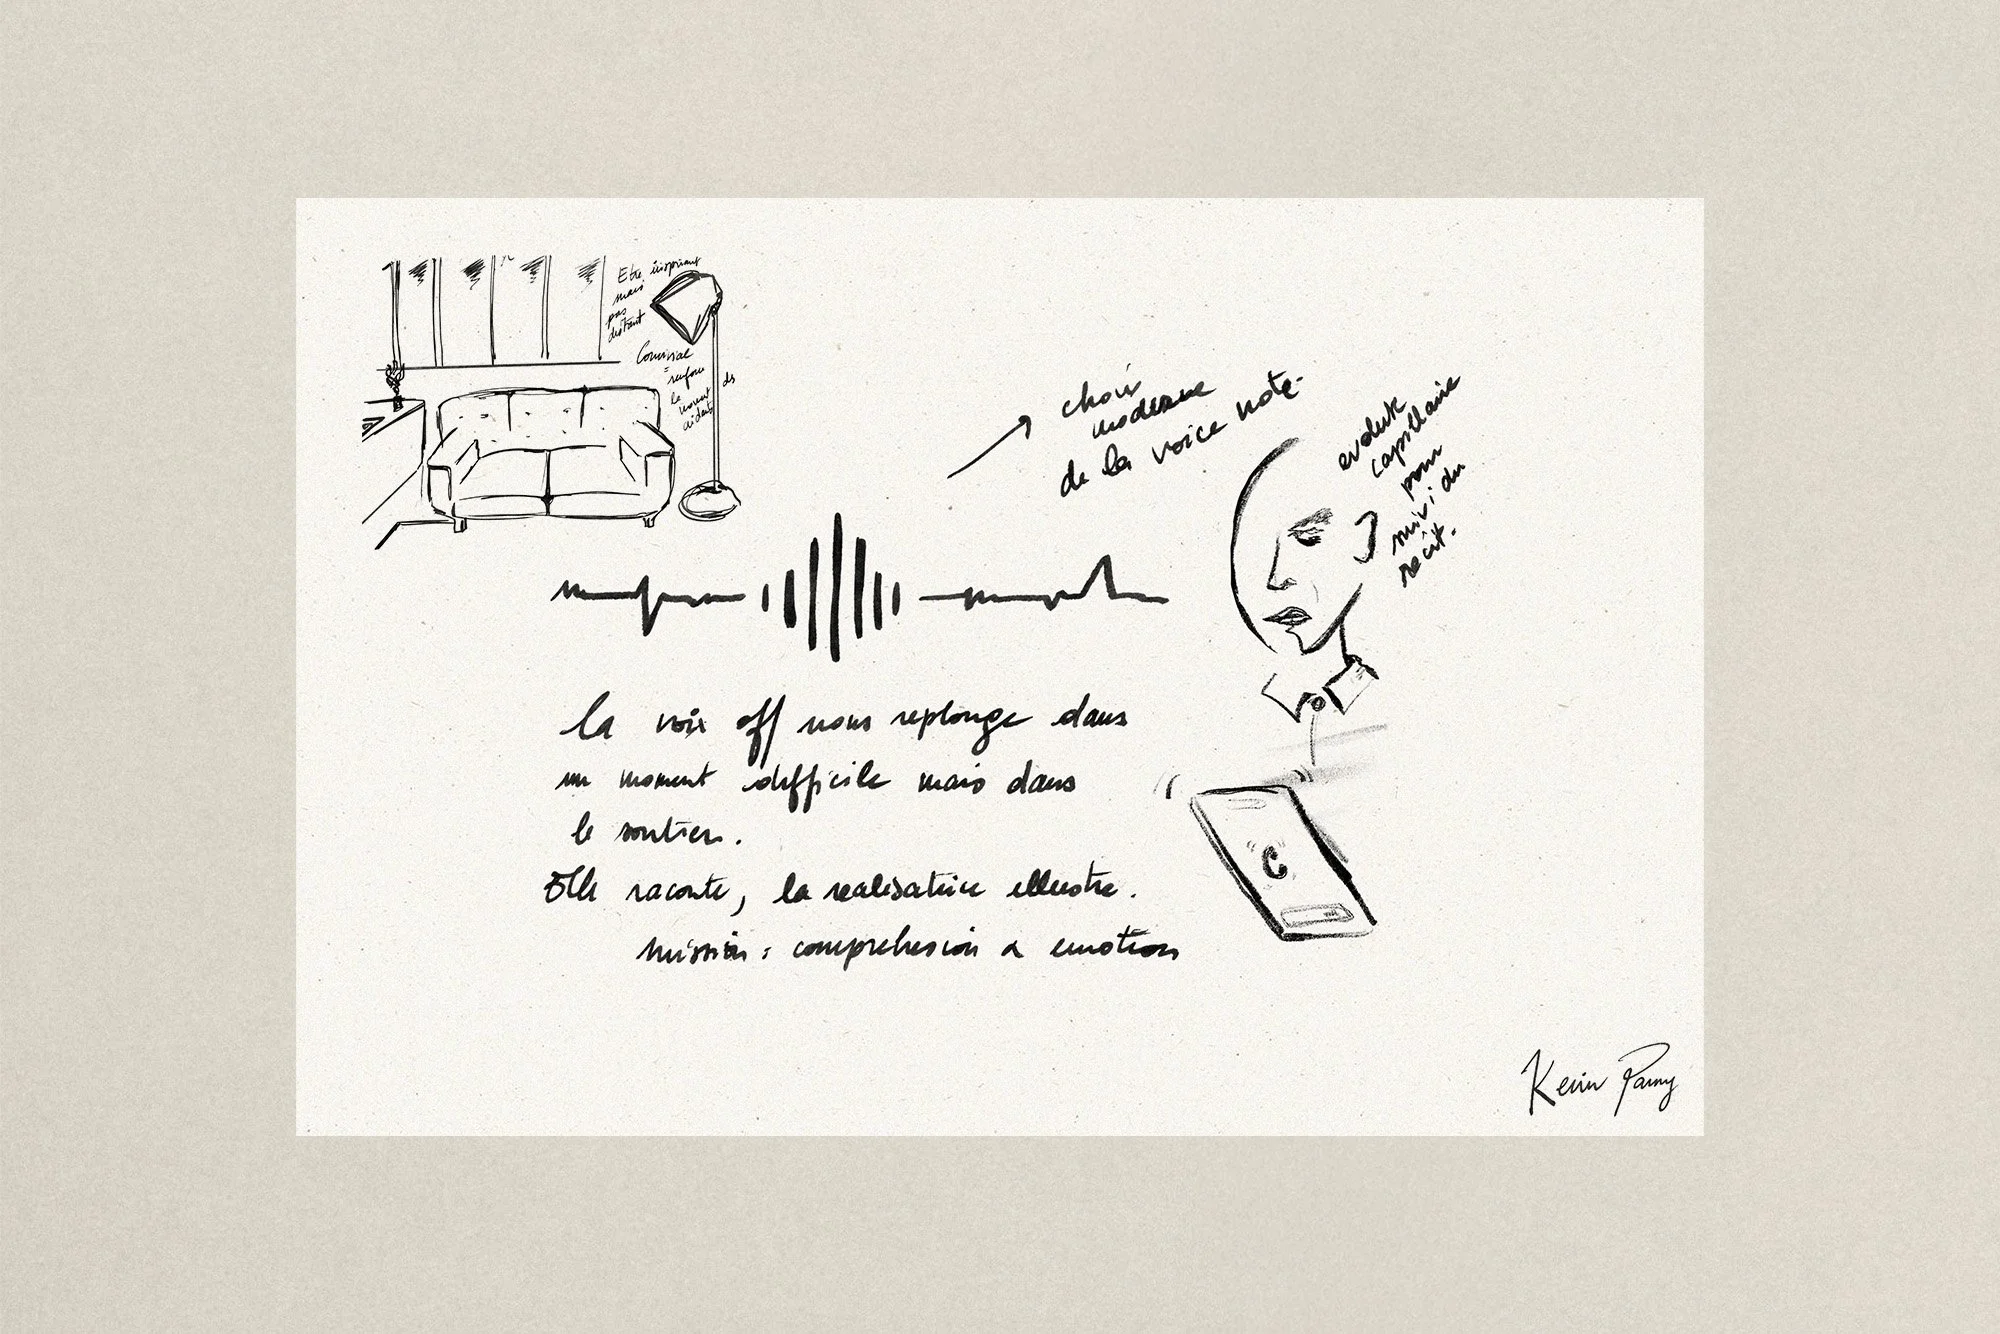 Etre inspirant
mais
pas
distant
Convivial
=
renforce
le des
aidants
choix
moderne
de la voice note.
capillaire
pour
suivi du
récit.
la voix off nous replonge dans
un moment difficile mais dans
le soutien.
Elle raconte, la realisatrice illustre.
mission : comprehesion & emotion
C
Kevin Pamy